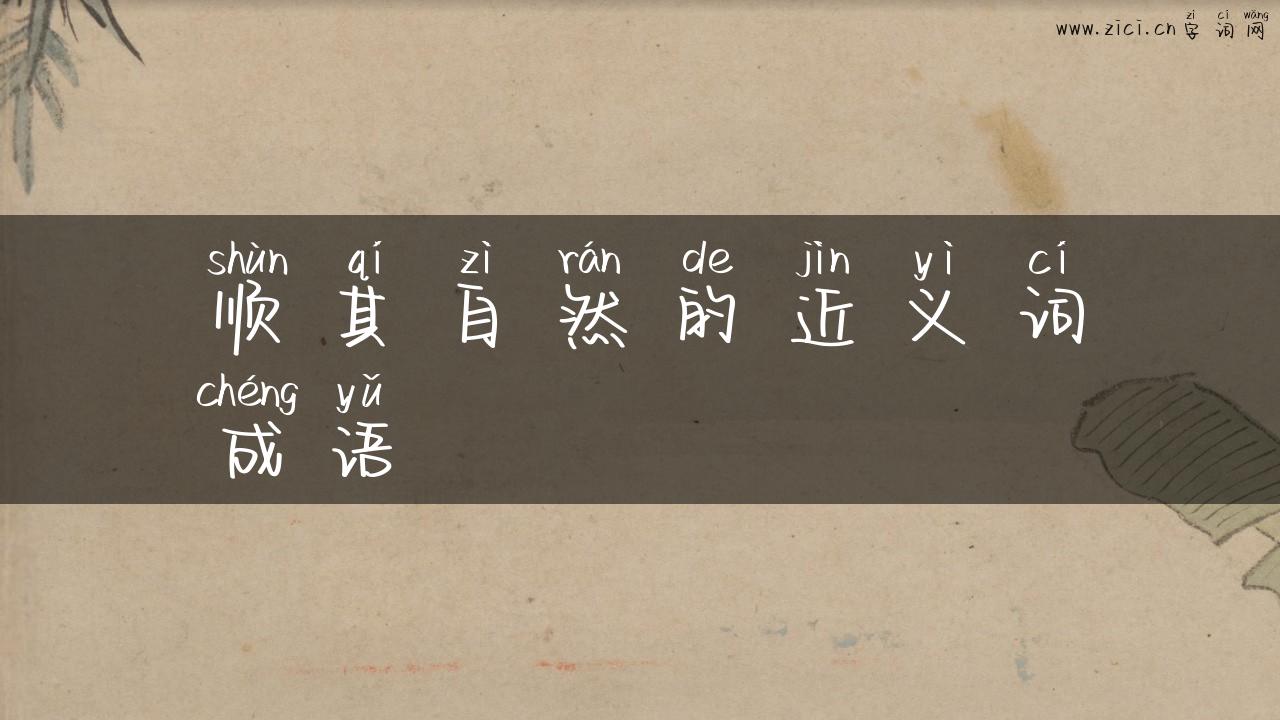 zì cí wǎng
www.zici.cn 字 词 网
shùn qí zì rán de jìn yì cí
顺 其 自 然 的 近 义 词
chéng yǔ
成 语